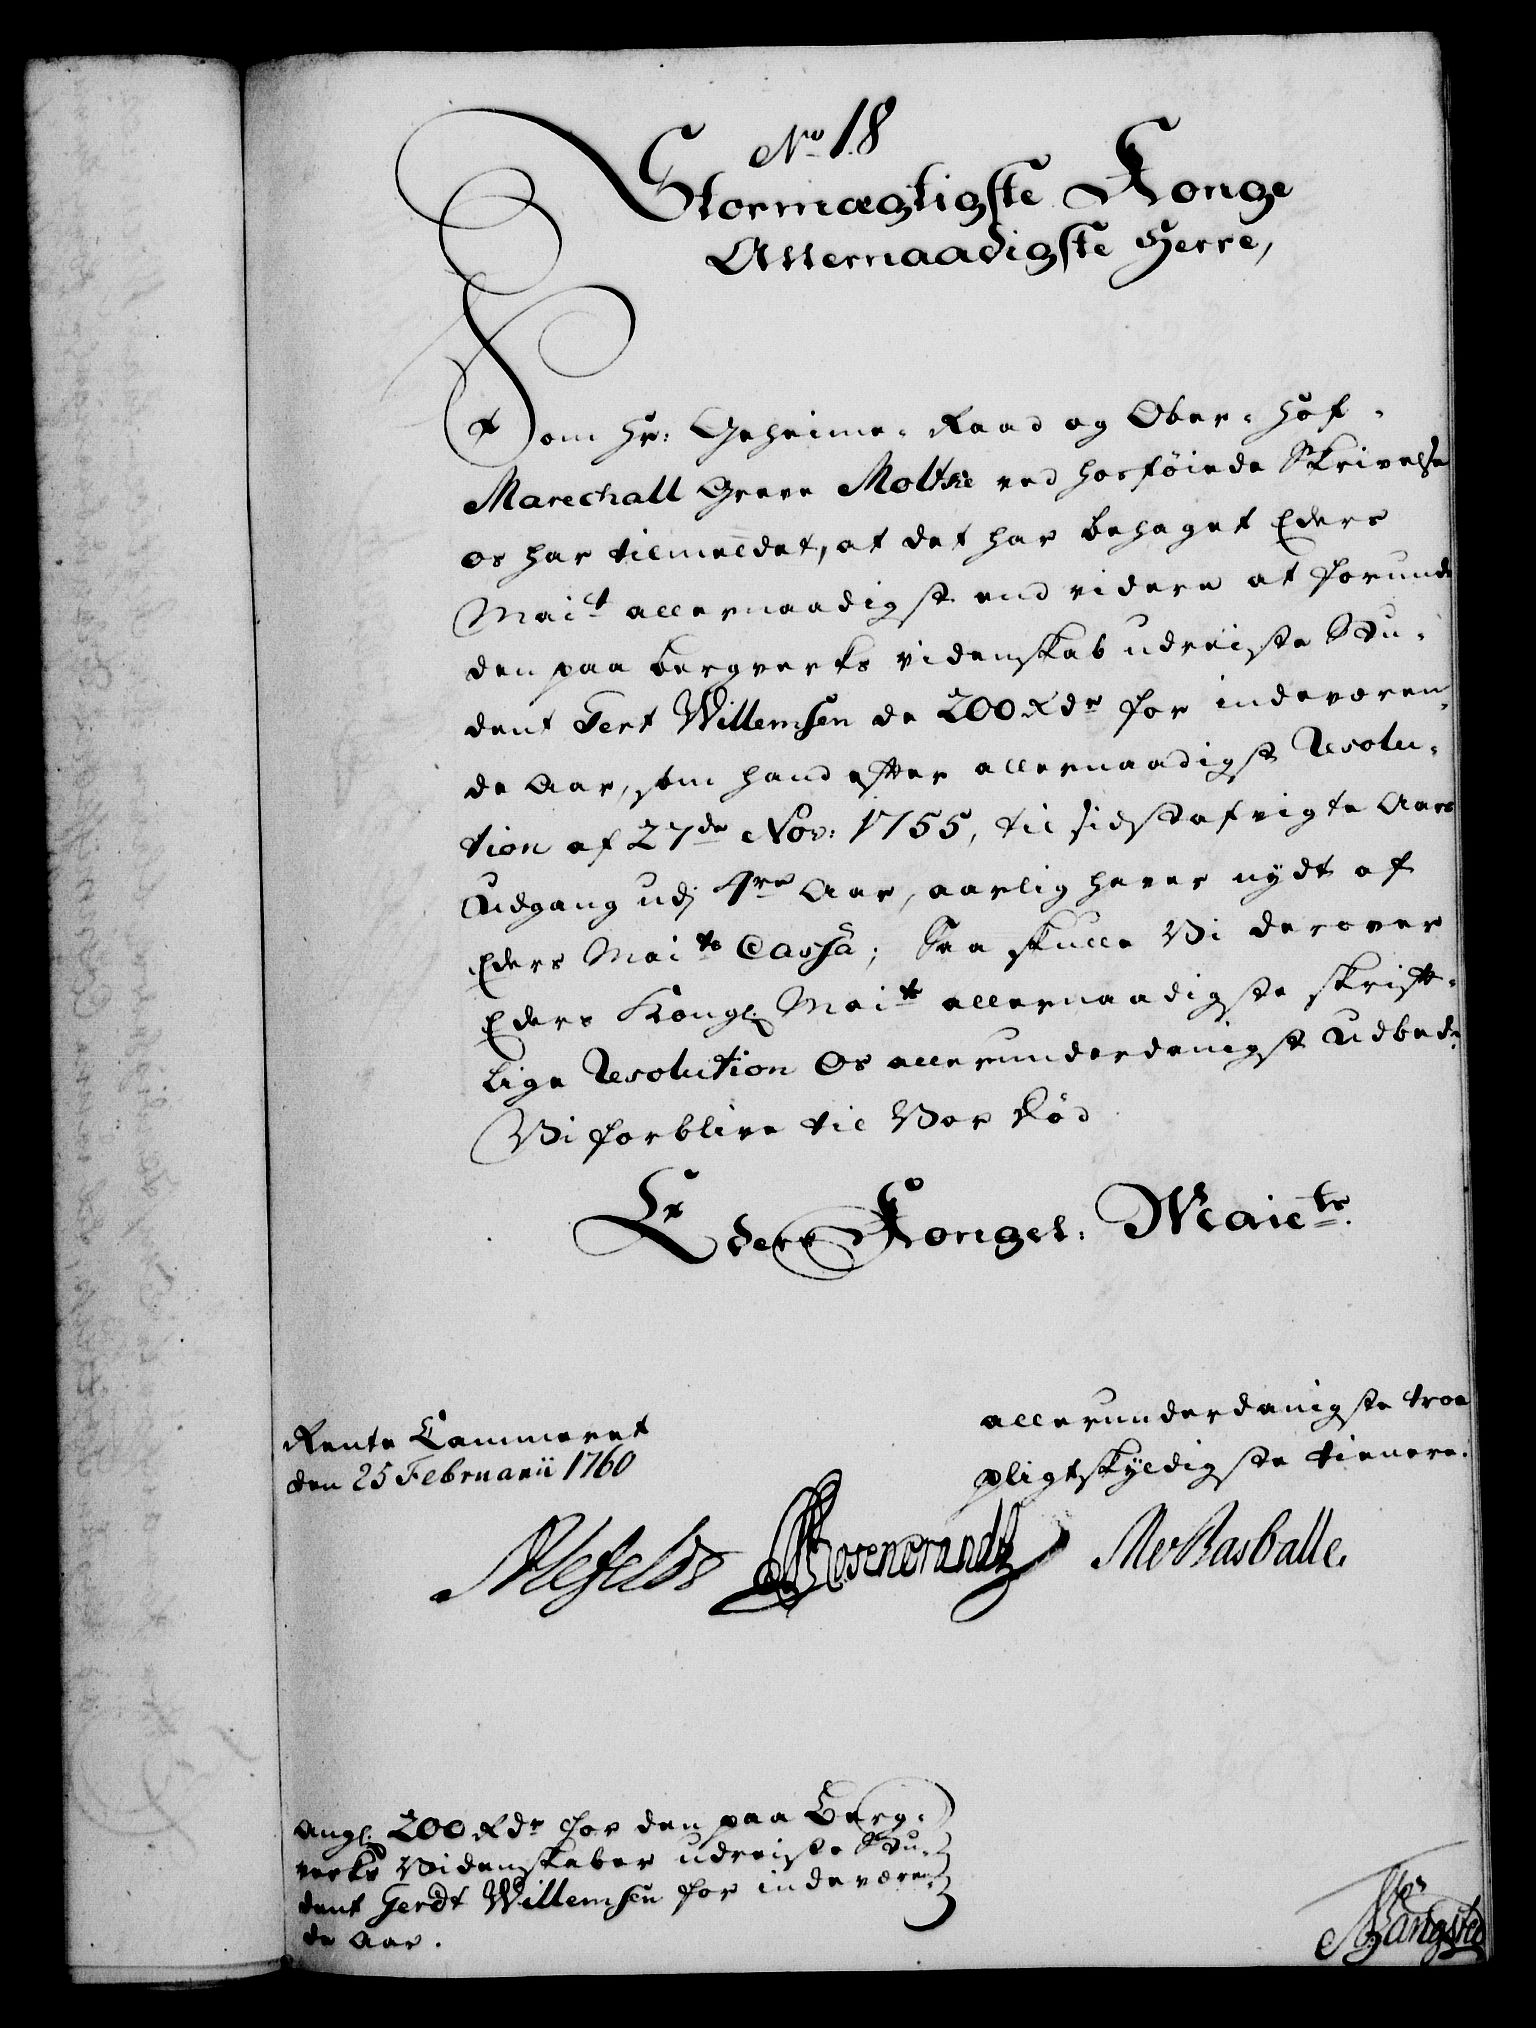 No 18
Stormægtigste Konge
Allernaadigste Herre,
Som Hr: Geheime-Raad og Ober-Hof-
Marechall Greve Moltke ved hosføiede Skrivelse
os har tilmeldet, at det har behaget Eders
Mait allernaadigst end videre at forunde
den paa bergverks videnskab udreiste Stu-
dent Gert Willemsen de 200 Rdr for indeværen-
de Aar, som hand efter allernaadigst Resolu-
tion af 27de Nov: 1755, til sidstafvigte Aars
Udgang udj 4re Aar, aarlig haver nydt af
Eders Maits Cassa; Saa skulle Vi derover
Eders Kongl: Maits allernaadigste skrift-
lige Resolution Os allerunderdanigst Udbede.
Vi forblive til Vor Død
Eders Kongel: Maiets.
Rente Cammeret
den 25 Februarii 1760
allerunderdanigste troe
pligtskyldigste tienere.
Ahlefeldt Rosencrandtz Basballe.
angl: 200 Rdr for den paa Berg-
verks Videnskaber udreiste Stu-
dent Gerdt Willemsen for indeværen-
de Aar.
Bangsted